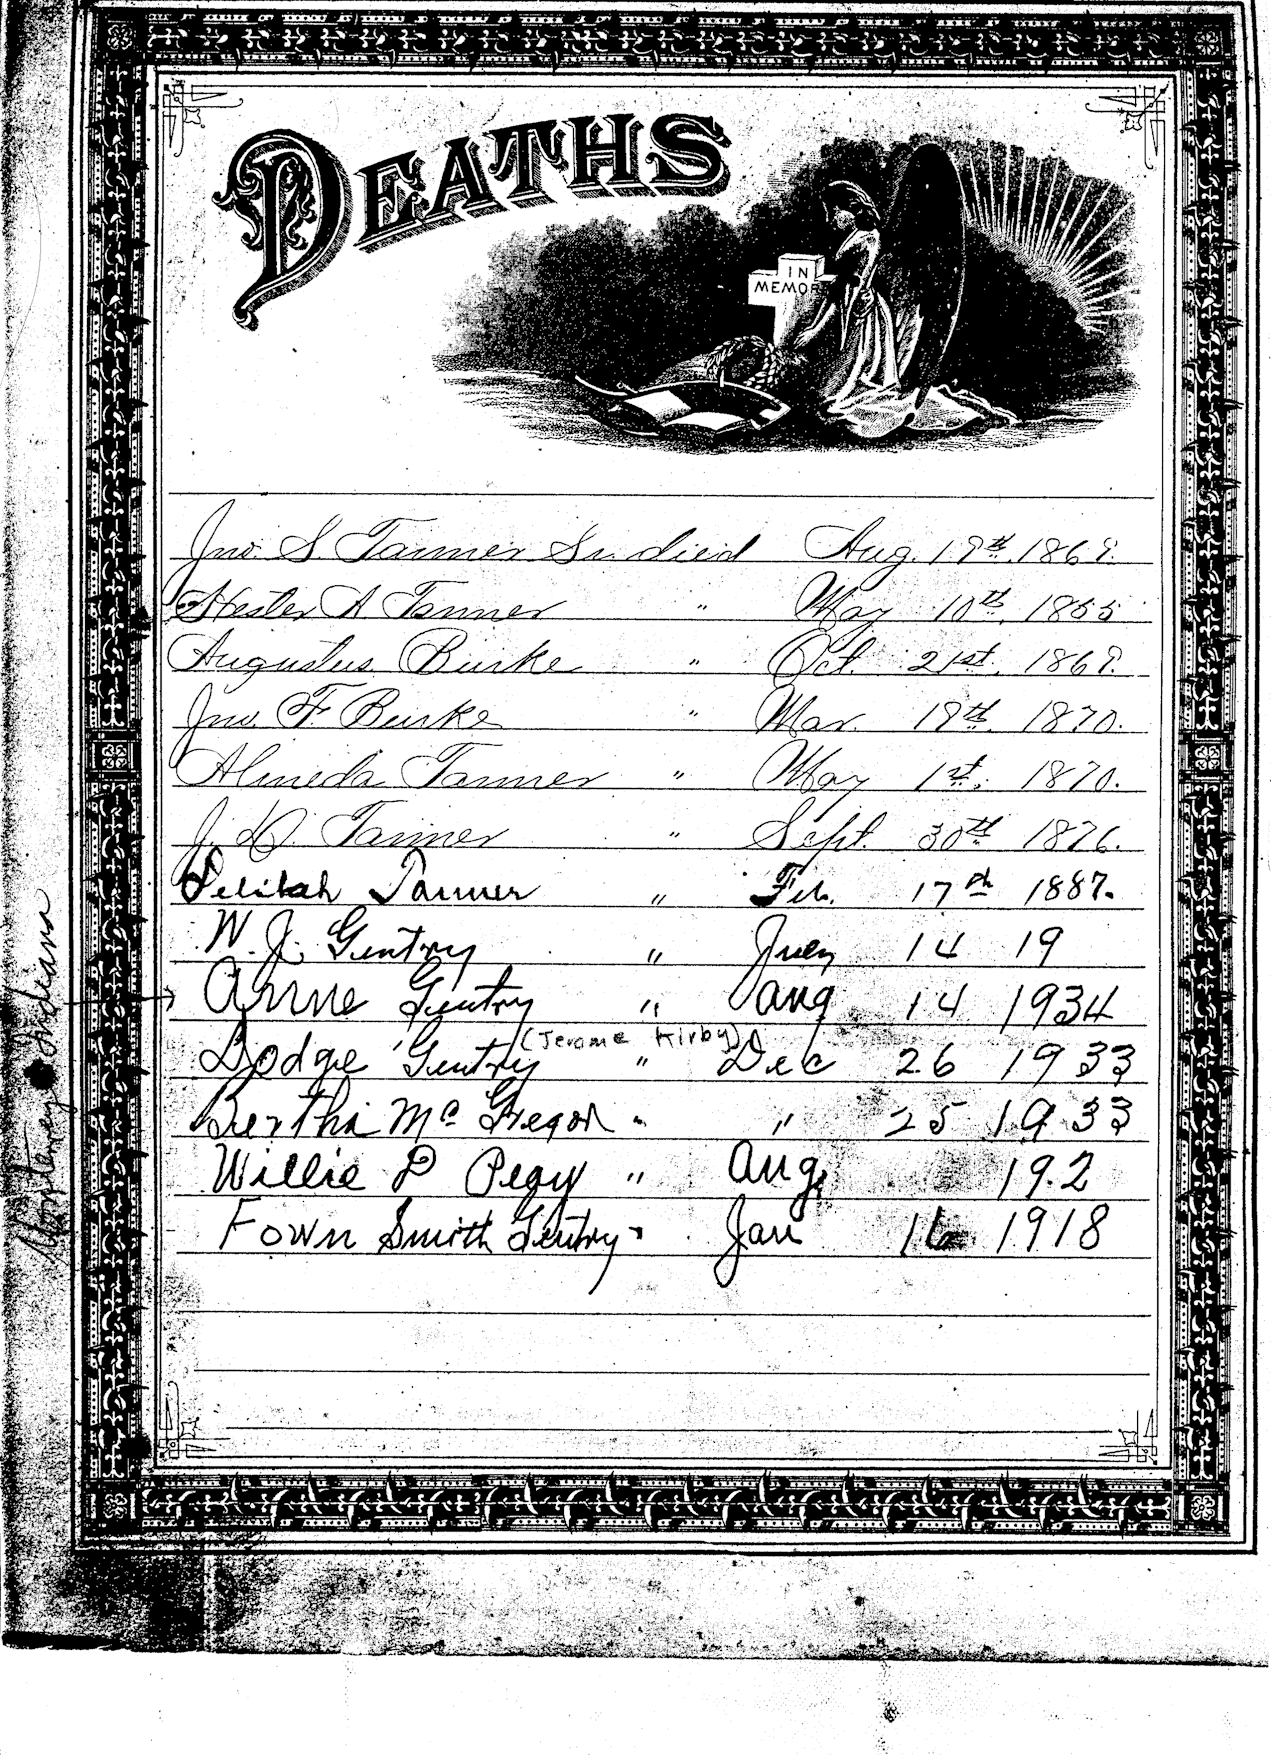 DEATHS
IN
MEMORY
Jno. S Tanner Sr. died Aug. 19th. 1869.
Hester A Tanner " May 10th. 1855
Augustus Burke " Oct. 21st. 1869.
Jno. F. Burke " Mar. 19th. 1870.
Almeda Tanner " May 1st. 1870.
J. D. Tanner " Sept. 30th 1876.
Delilah Tanner " Feb. 17th 1887.
W. J. Gentry " July 14 19
Anne Gentry " Aug 14 1934
(Jerome Kirby)
Dodge Gentry " Dec 26 1933
Bertha Mc Gregor " " 25 1933
Willie P Pegy " Aug. 19.2
Fown Smith Gentry " Jan 16 1918
Monterey Indiana